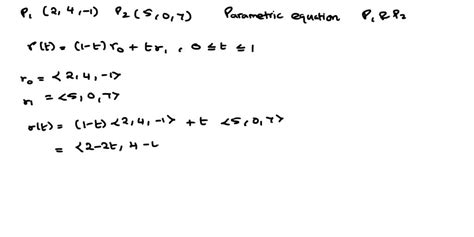 P₁ (2,4,-1) P₂ (5,0,7) Parametric equation P₁ & P₂
r(t) = (1-t) r₀ + t r₁ , 0 ≤ t ≤ 1
r₀ = <2,4,-1>
r₁ = <5,0,7>
r(t) = (1-t) <2,4,-1> + t <5,0,7>
= <2-2t, 4-4